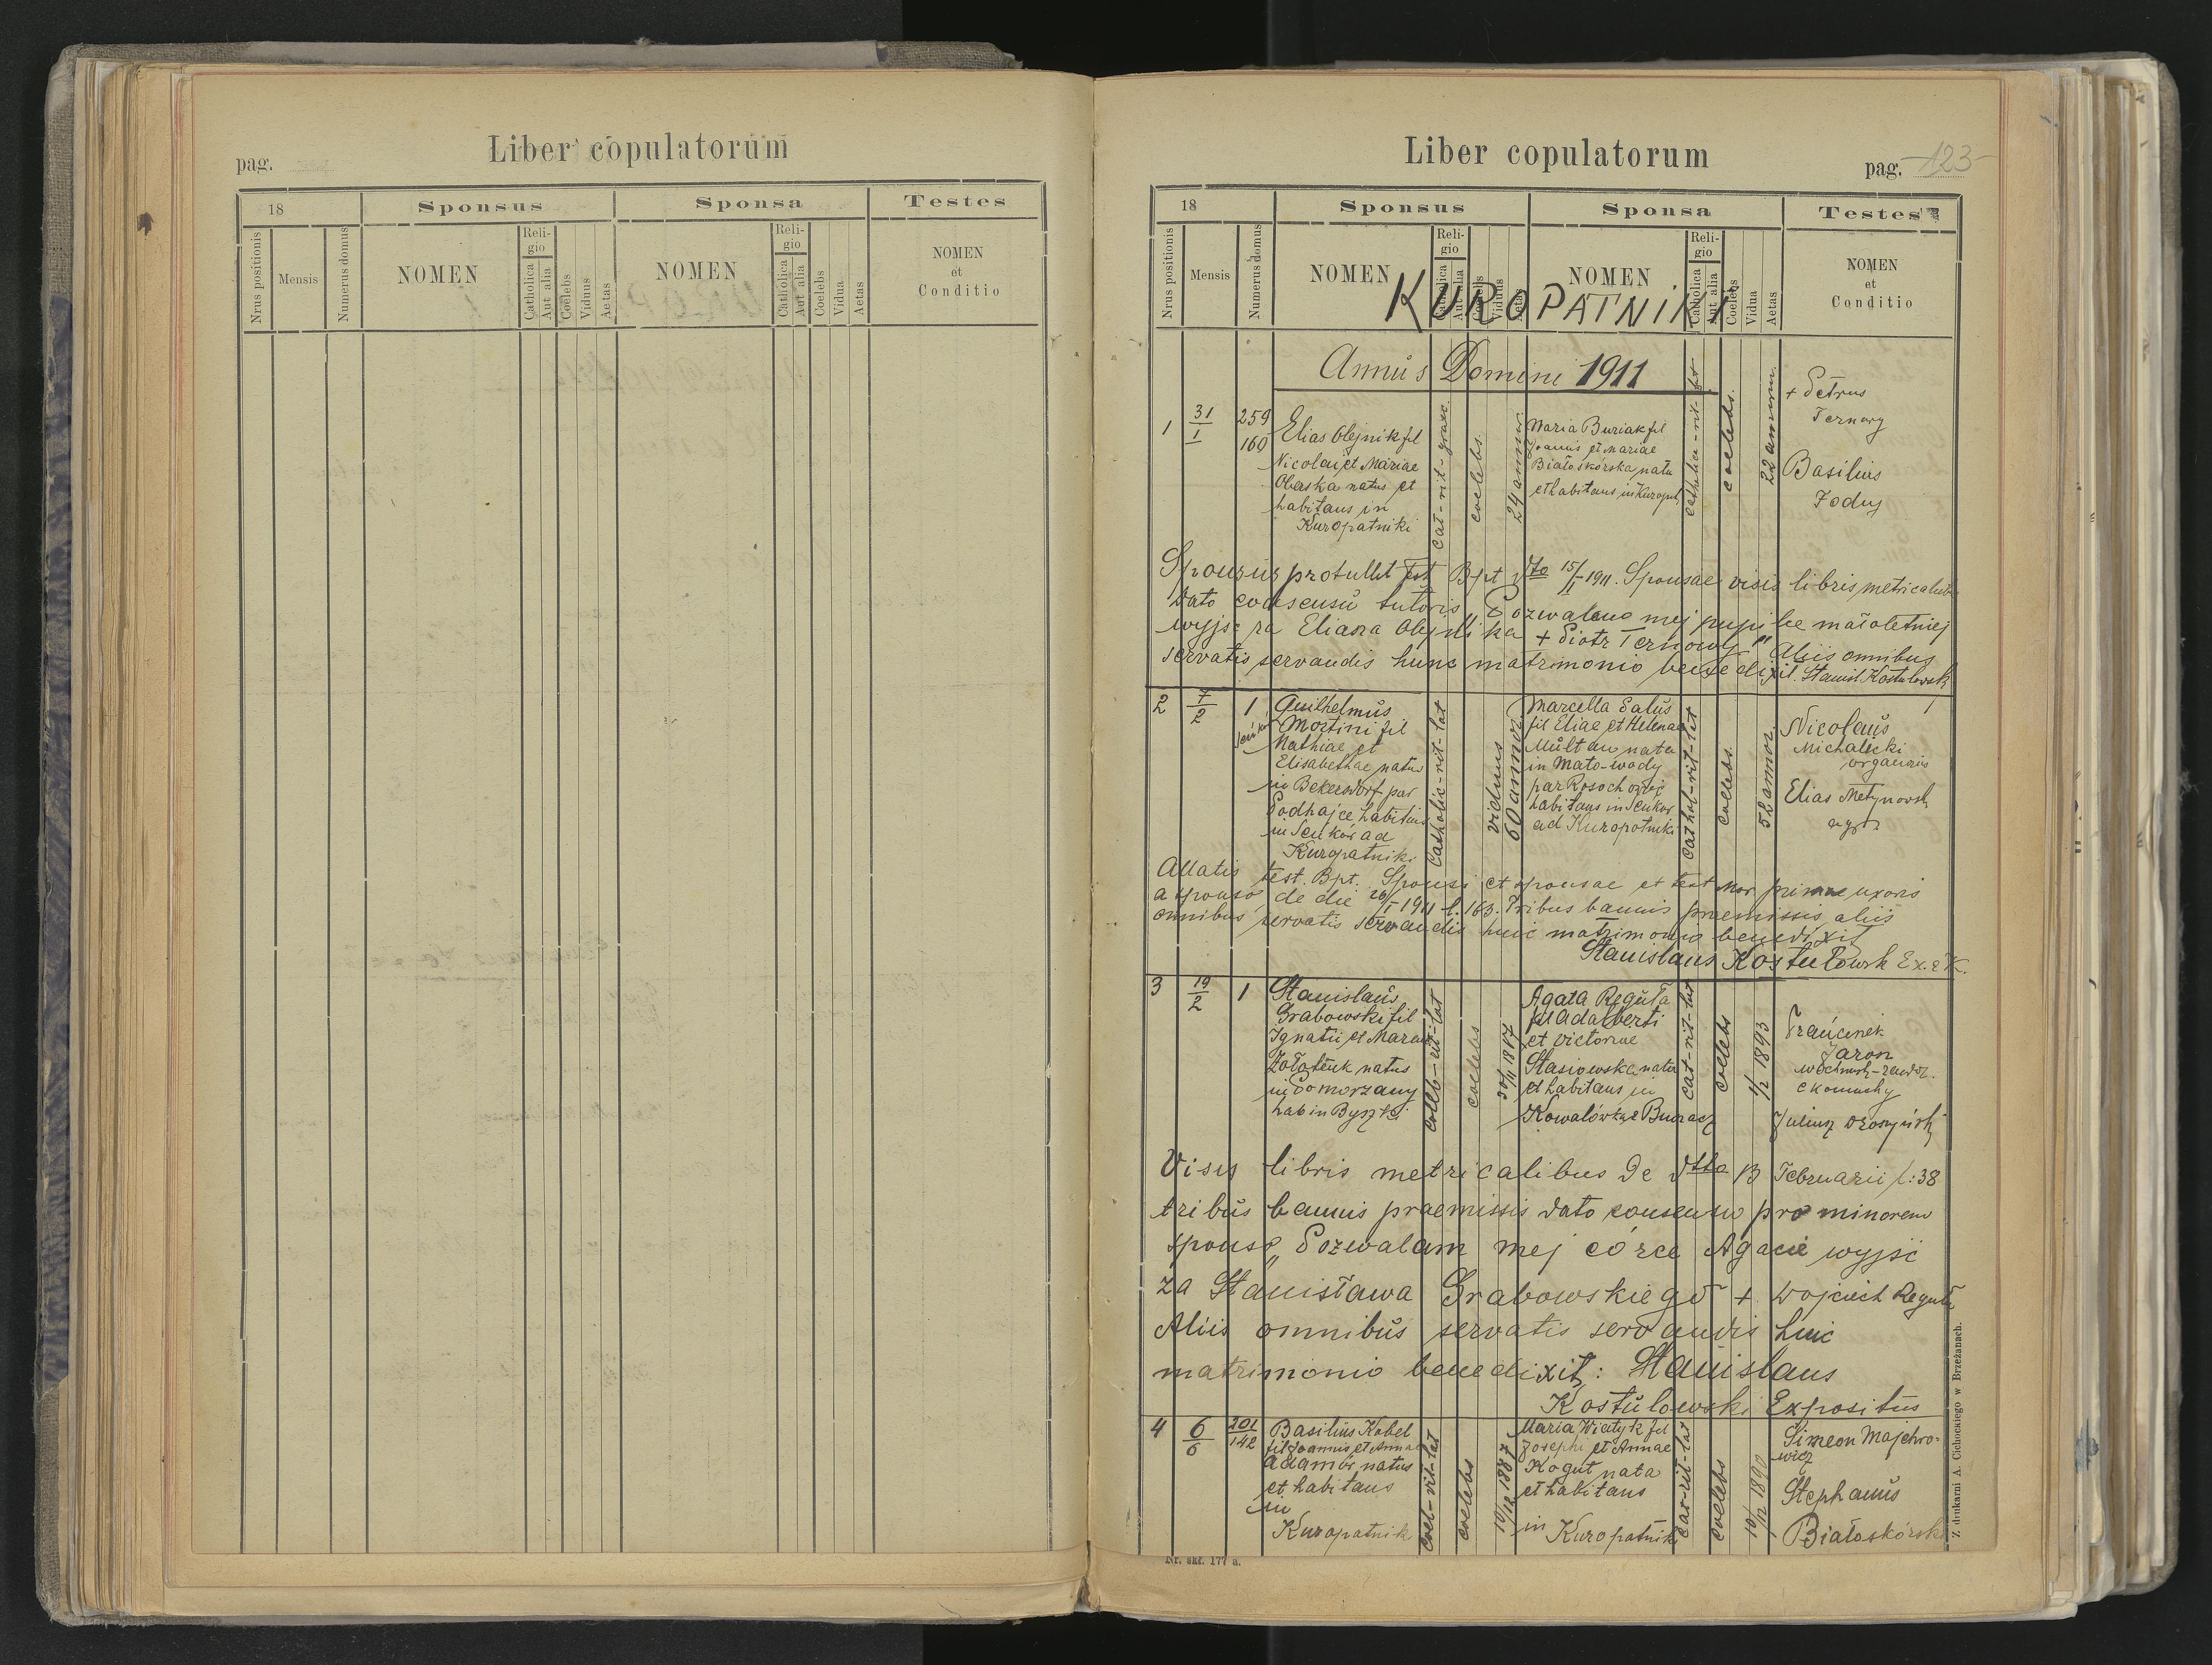 Liber copulatorum
pag.
18
Sponsus
Sponsa
Testes
Nrus positionis
Mensis
Numerus domus
NOMEN
Religio
Catholica
Aut alia
Coelebs
Viduus
Aetas
NOMEN
Religio
Catholica
Aut alia
Coelebs
Vidua
Aetas
NOMEN
et
Conditio
Liber copulatorum
pag. -123-
18
Sponsus
Sponsa
Testes
Nrus positionis
Mensis
Numerus domus
NOMEN
Religio
Catholica
Aut alia
Coelebs
Viduus
Aetas
NOMEN
Religio
Catholica
Aut alia
Coelebs
Vidua
Aetas
NOMEN
et
Conditio
KUROPATNIKI
Annus Domini 1911
1
31/1
259
160
Elias Olejnik fil
Nicolai et Mariae
natus et
habitans in
Kuropatniki
coelebs.
24 annor.
Maria Buriak fil
Joannis et Mariae
Białoskórska nata
et habitans in Kuropat
coelebs.
22 annor.
+ Petrus
Ternowy
Basilius
Foduj
Sponsus protullit Test Bpt dto 15/I-1911. Sponsae visis libris metricalib
dato consensu tutoris „Pozwalam mej pupilce małoletniej
wyjść za Eliasza Olejnika + Piotr Ternowyj" Aliis omnibus
servatis servandis hunc matrimonio benedixit. Stanisl Kostulowsk
2
7/2
1
Guilhelmus
Mortini fil
Mathiae et
Elisabethae natus
in Bekersdorf par
Podhajce habitans
in Seńków ad
Kuropatniki
catholic-rit-lat
viduus
60 annor.
Marcella Salus
fil Eliae et Helenae
Multan nata
in Mało-wody
par Rosochowic
habitans in Seńkow
ad Kuropatniki
cathol-rit-lat
coelebs.
52 annor.
Nicolaus
Michalicki
organis
Elias
Allatis test. Bpt. Sponsi et sponsae et test Mor primae uxoris
a sponso de die 20/I-1911 l. 163. Tribus bannis praemissis aliis
omnibus servatis servandis huic matrimonio benedixit
Stanislaus Kostulowsk Ex.
3
19/2
1
Stanislaus
Grabowski fil
Ignatii et Mariae
natus
in Pomorzany
hab in Byszki
coelebs
Agata Reguła
fil Adalberti
et Victoriae
Stasiowska nata
et habitans in
Kowalówka
cat-rit-lat
coelebs
1/2 1893
Franciszek
Jaron
Juliusz
Visis libris metricalibus de dtto 13 Februarii l: 38
tribus bannis praemissis dato consensu pro minorene
sponso „Pozwalam mej córce Agacie wyjść
za Stanisława Grabowskiego + Wojciech Reguła
Aliis omnibus servatis servandis huic
matrimonio benedixit: Stanislaus
Kostulowski Expositus
4
6/6
201/142
Basilius Kobel
fil Joannis et Annae
Adamów natus
et habitans
in
Kuropatnik
coelebs
10/12 1887
Maria Wiatyk fil
Josephi et Annae
Kogut nata
et habitans
in Kuropatnik
cat-rit-lat
coelebs
10/12 1890
Simeon Majchrowicz
Stephanus
Białoskórski
Z drukarni A. Cichockiego w Brzeżanach.
Nr. skł. 177 a.